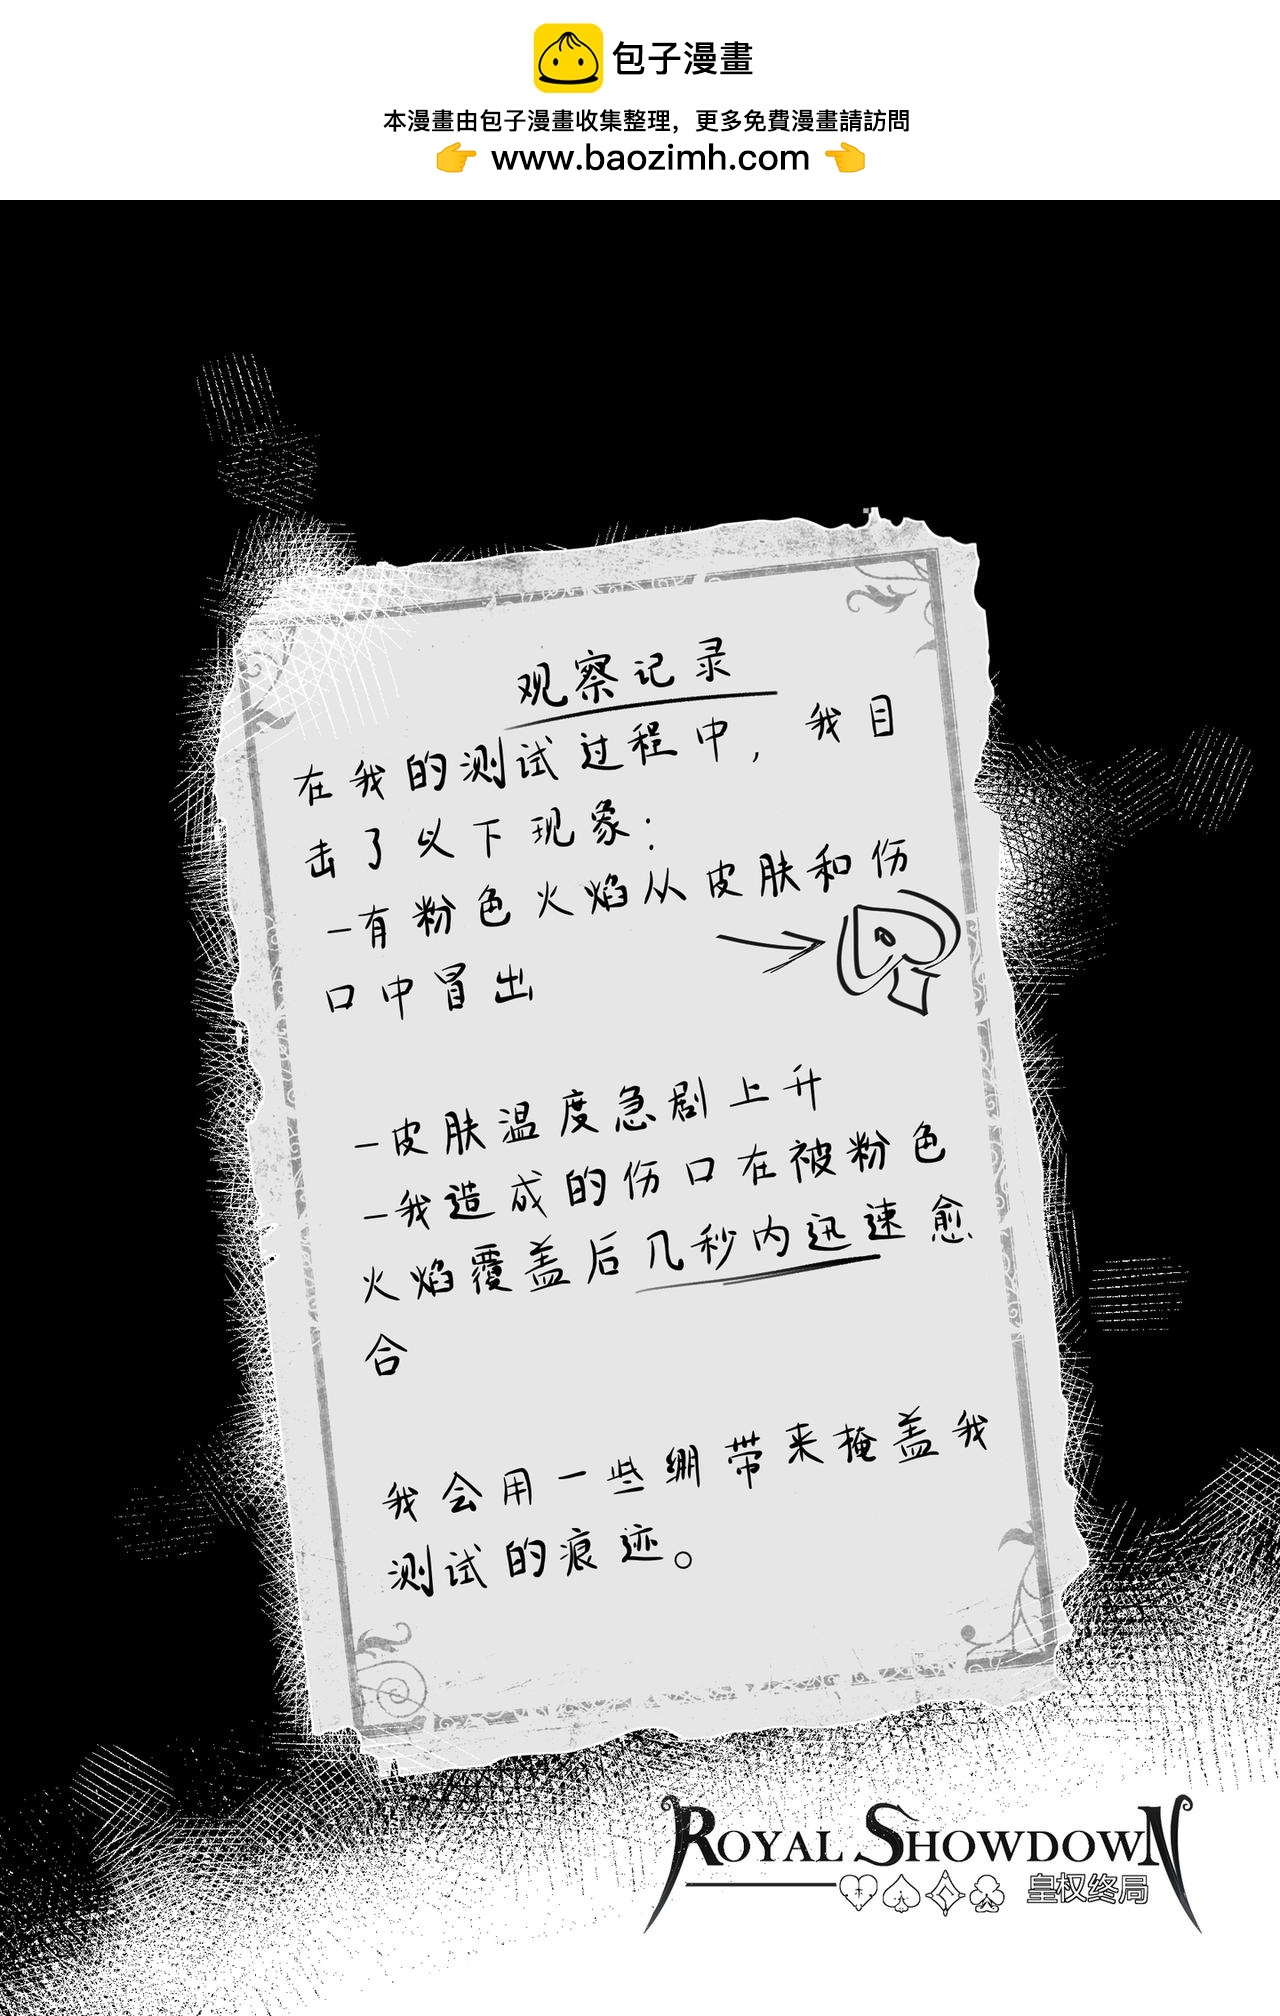 包子漫畫
本漫畫由包子漫畫收集整理，更多免費漫畫請訪問
👉 www.baozimh.com 👈
观察记录
在我的测试过程中，我目
击了以下现象：
-有粉色火焰从皮肤和伤
口中冒出
-皮肤温度急剧上升
-我造成的伤口在被粉色
火焰覆盖后几秒内迅速愈
合
我会用一些绷带来掩盖我
测试的痕迹。
ROYAL SHOWDOWN
皇权终局